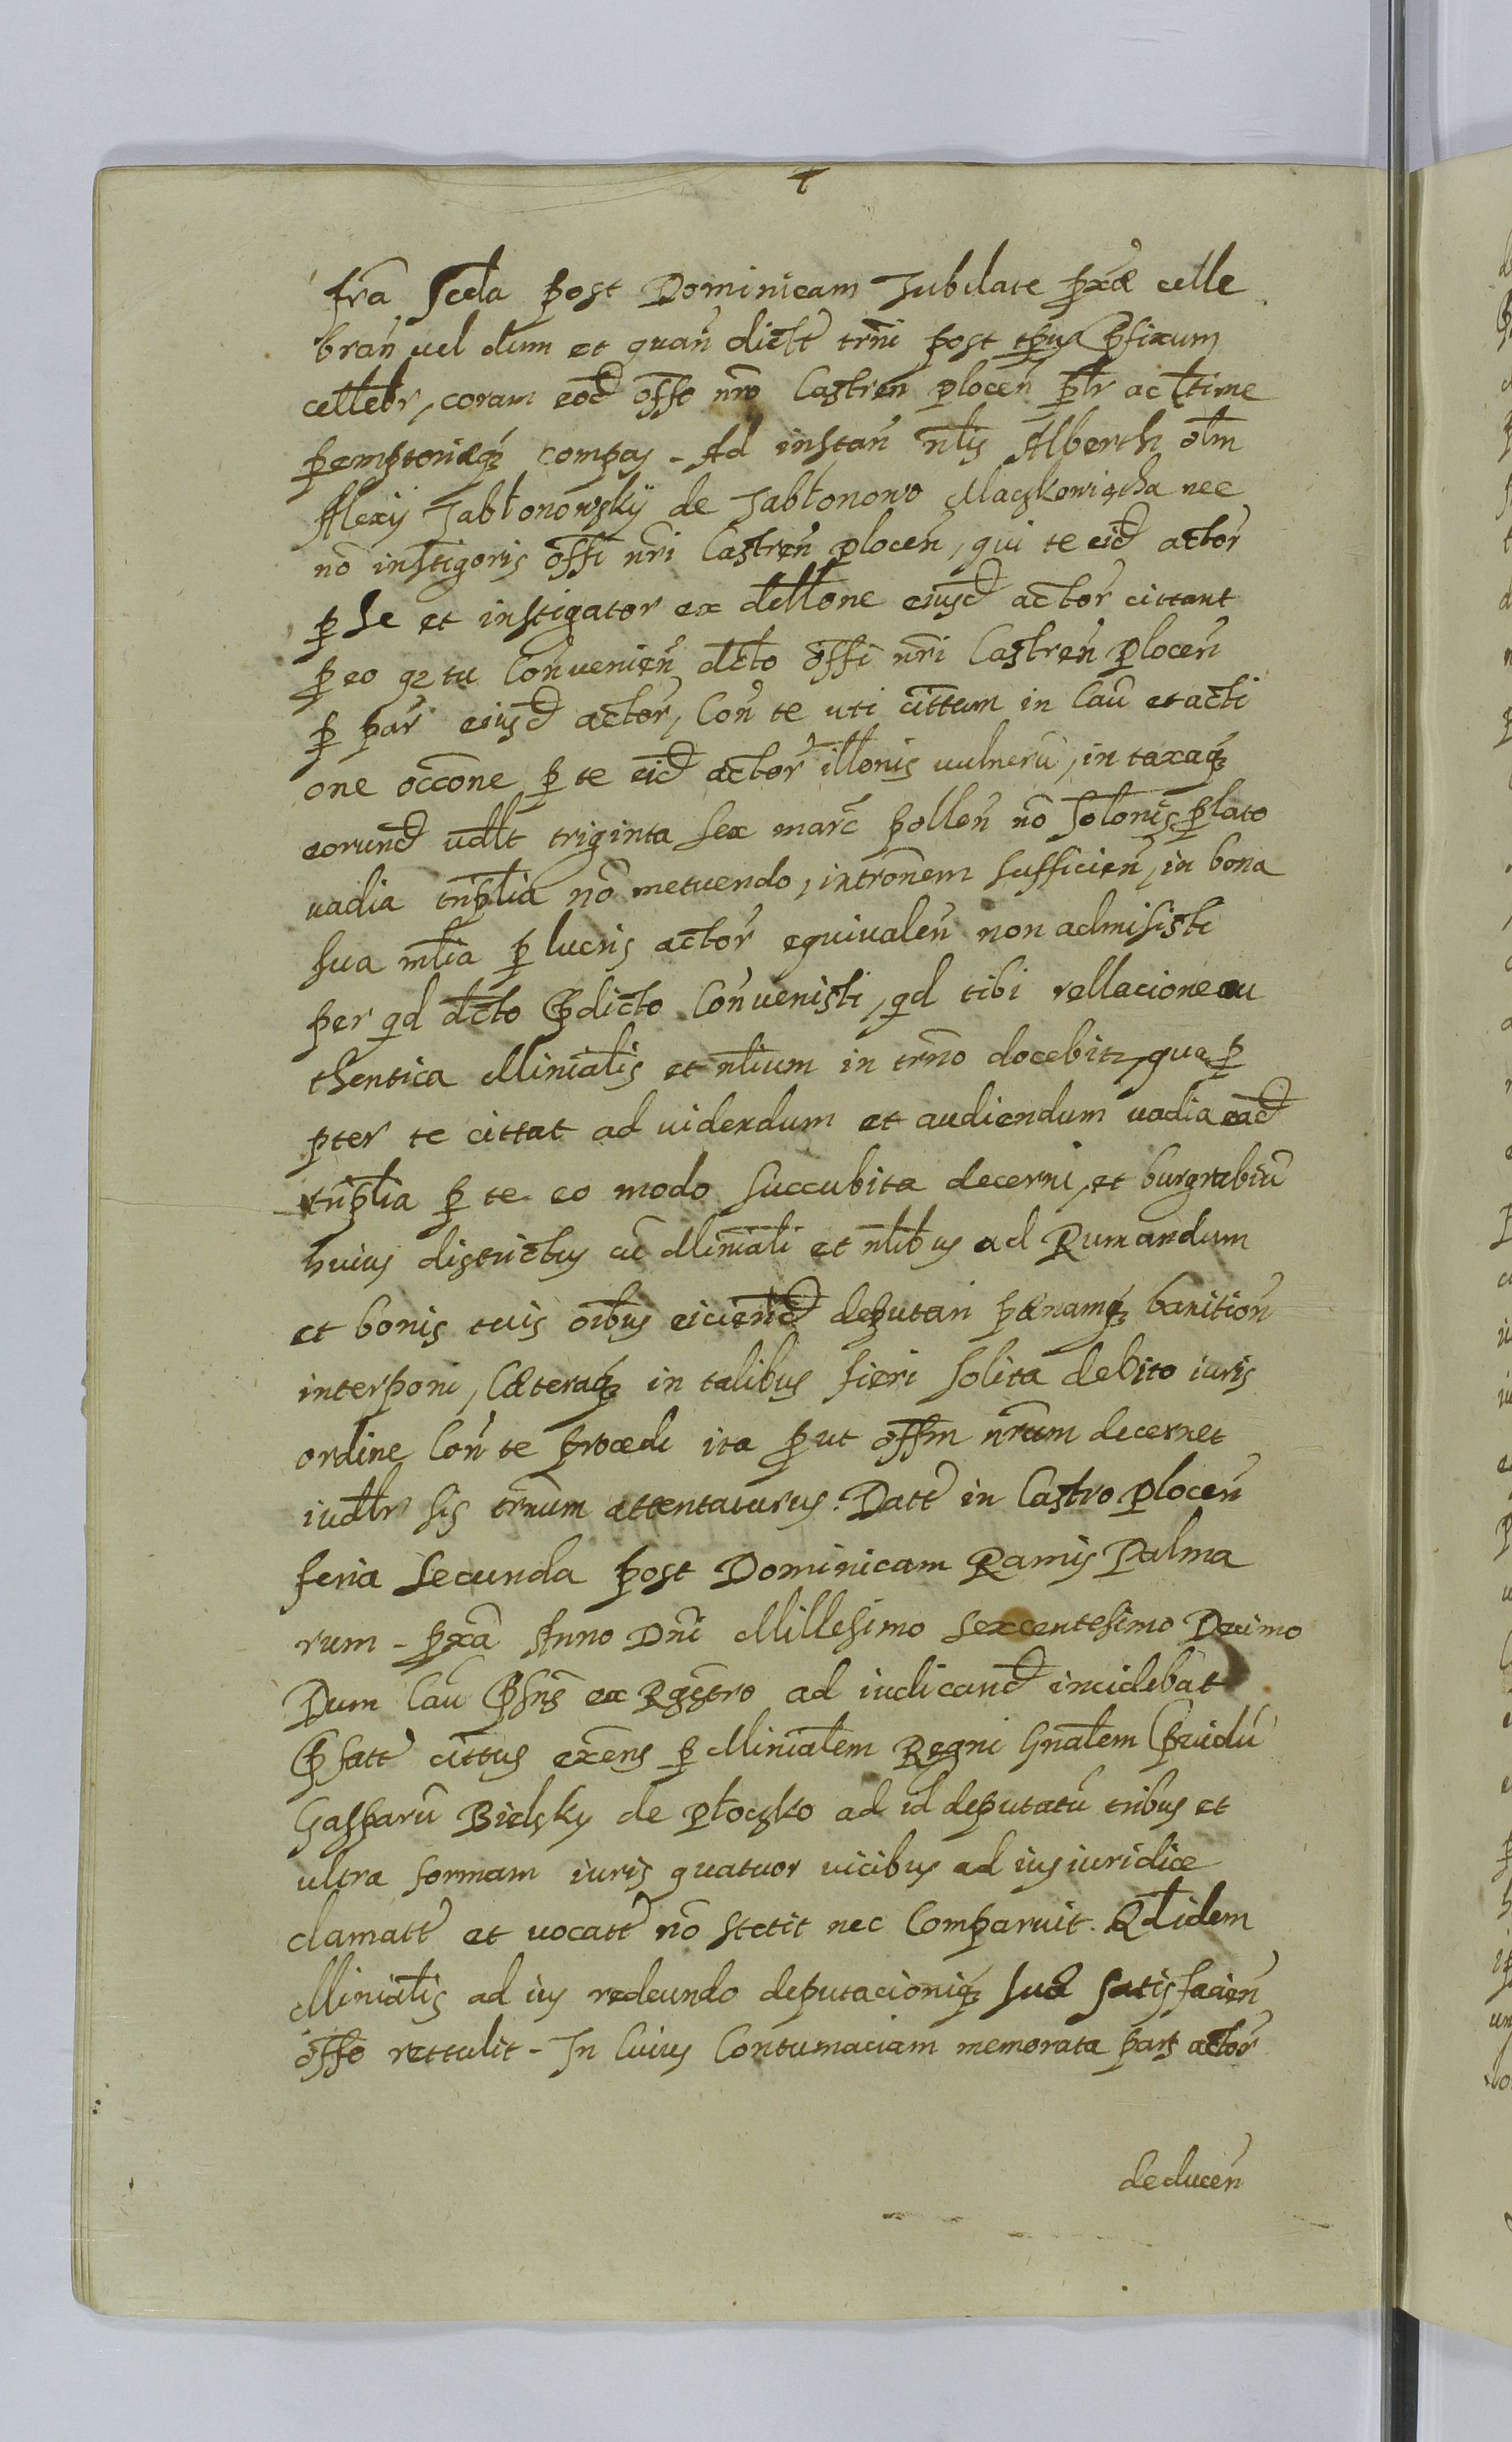 fr̄a Scd̄a post Dominicam Jubilate px̄ae celle
bran̄ uel dum et quan̄ dictt̄ trn̄i post tp̄us p̄fixum
cellebr̄, coram eod̄ off̄o nr̄o Castren̄ plocen̄ pl̄r ac ltime
pemptorieq̄ compas – Ad instan̄ nl̄is Alberth ol̄m
Alexij Jabłonowskÿ de Jabłonowo Maczkowięcha nec
nō instigoris off̄i nr̄i Castren̄ plocen̄, qui te eid̄ actor̄
p se et instigator ex dell̄one eiusd̄ actor̄ cittant
p eo qz tu Conuenien̄ dct̄o off̄i nr̄i Castren̄ plocen̄
p par̄ eiusd̄ actor̄, Con̄ te uti citt̄um in Cau̅ et acti
one occ̄one p te eid̄ actor̄ ill̄onis uulneru̅, in taxaq̄
eorund̄ vdl̄t triginta sex marc̄ pollen̄ nō Solōnis plato
uadia trip̄lia nō metuendo, intrōnem sufficien̄, in bona
sua ml̄ia p lucris actor̄ equiualen̄ non admisisti
per qd dct̄o p̄dicto Conuenisti, qd tibi rellacione au
thentica Minial̄is et nl̄ium in trn̄o docebitz, qua p
pter te cittat ad uidendum et audiendum uadia ead̄
trip̄lia p te eo modo succubita decerni, et burgrabiu̅
huius districtus cu̅ Minial̄i et nl̄ibus ad Rumandum
et bonis tuis oīb̄us eiciend̄ deputari paenamq̄ banition̄
interponi, Caeteraq̄ in talibus fieri solita debito iuris
ordine Con̄ te procedi ita put off̄m nr̄um decernet
iudl̄r sis trn̄um attentaturus. Datt̄ in Castro plocen̄
feria Secunda post Dominicam Ramis Palma
rum – px̄a Anno Dn̄i Millesimo Sexcentesimo Decimo
Dum Cau̅ p̄sn̄s ex Rgs̄tro ad iudicand̄ incidebat
p̄fatt̄ citt̄us exēns p Minial̄em Regni Gnal̄em p̄uidu̅
Gasparu̅ Bielsky de płoczko ad id deputatu̅ tribus et
ultra formam iuris quatuor uicibus ad ius iuridice
clamatt̄ et uocatt̄ nō stetit nec Comparuit. Qd̄ idem
Minial̄is ad ius redeundo deputacioniq̄ suae satisfacien̄
off̄o rettulit – In Cuius Contumaciam memorata pars actor̄
deducen̄